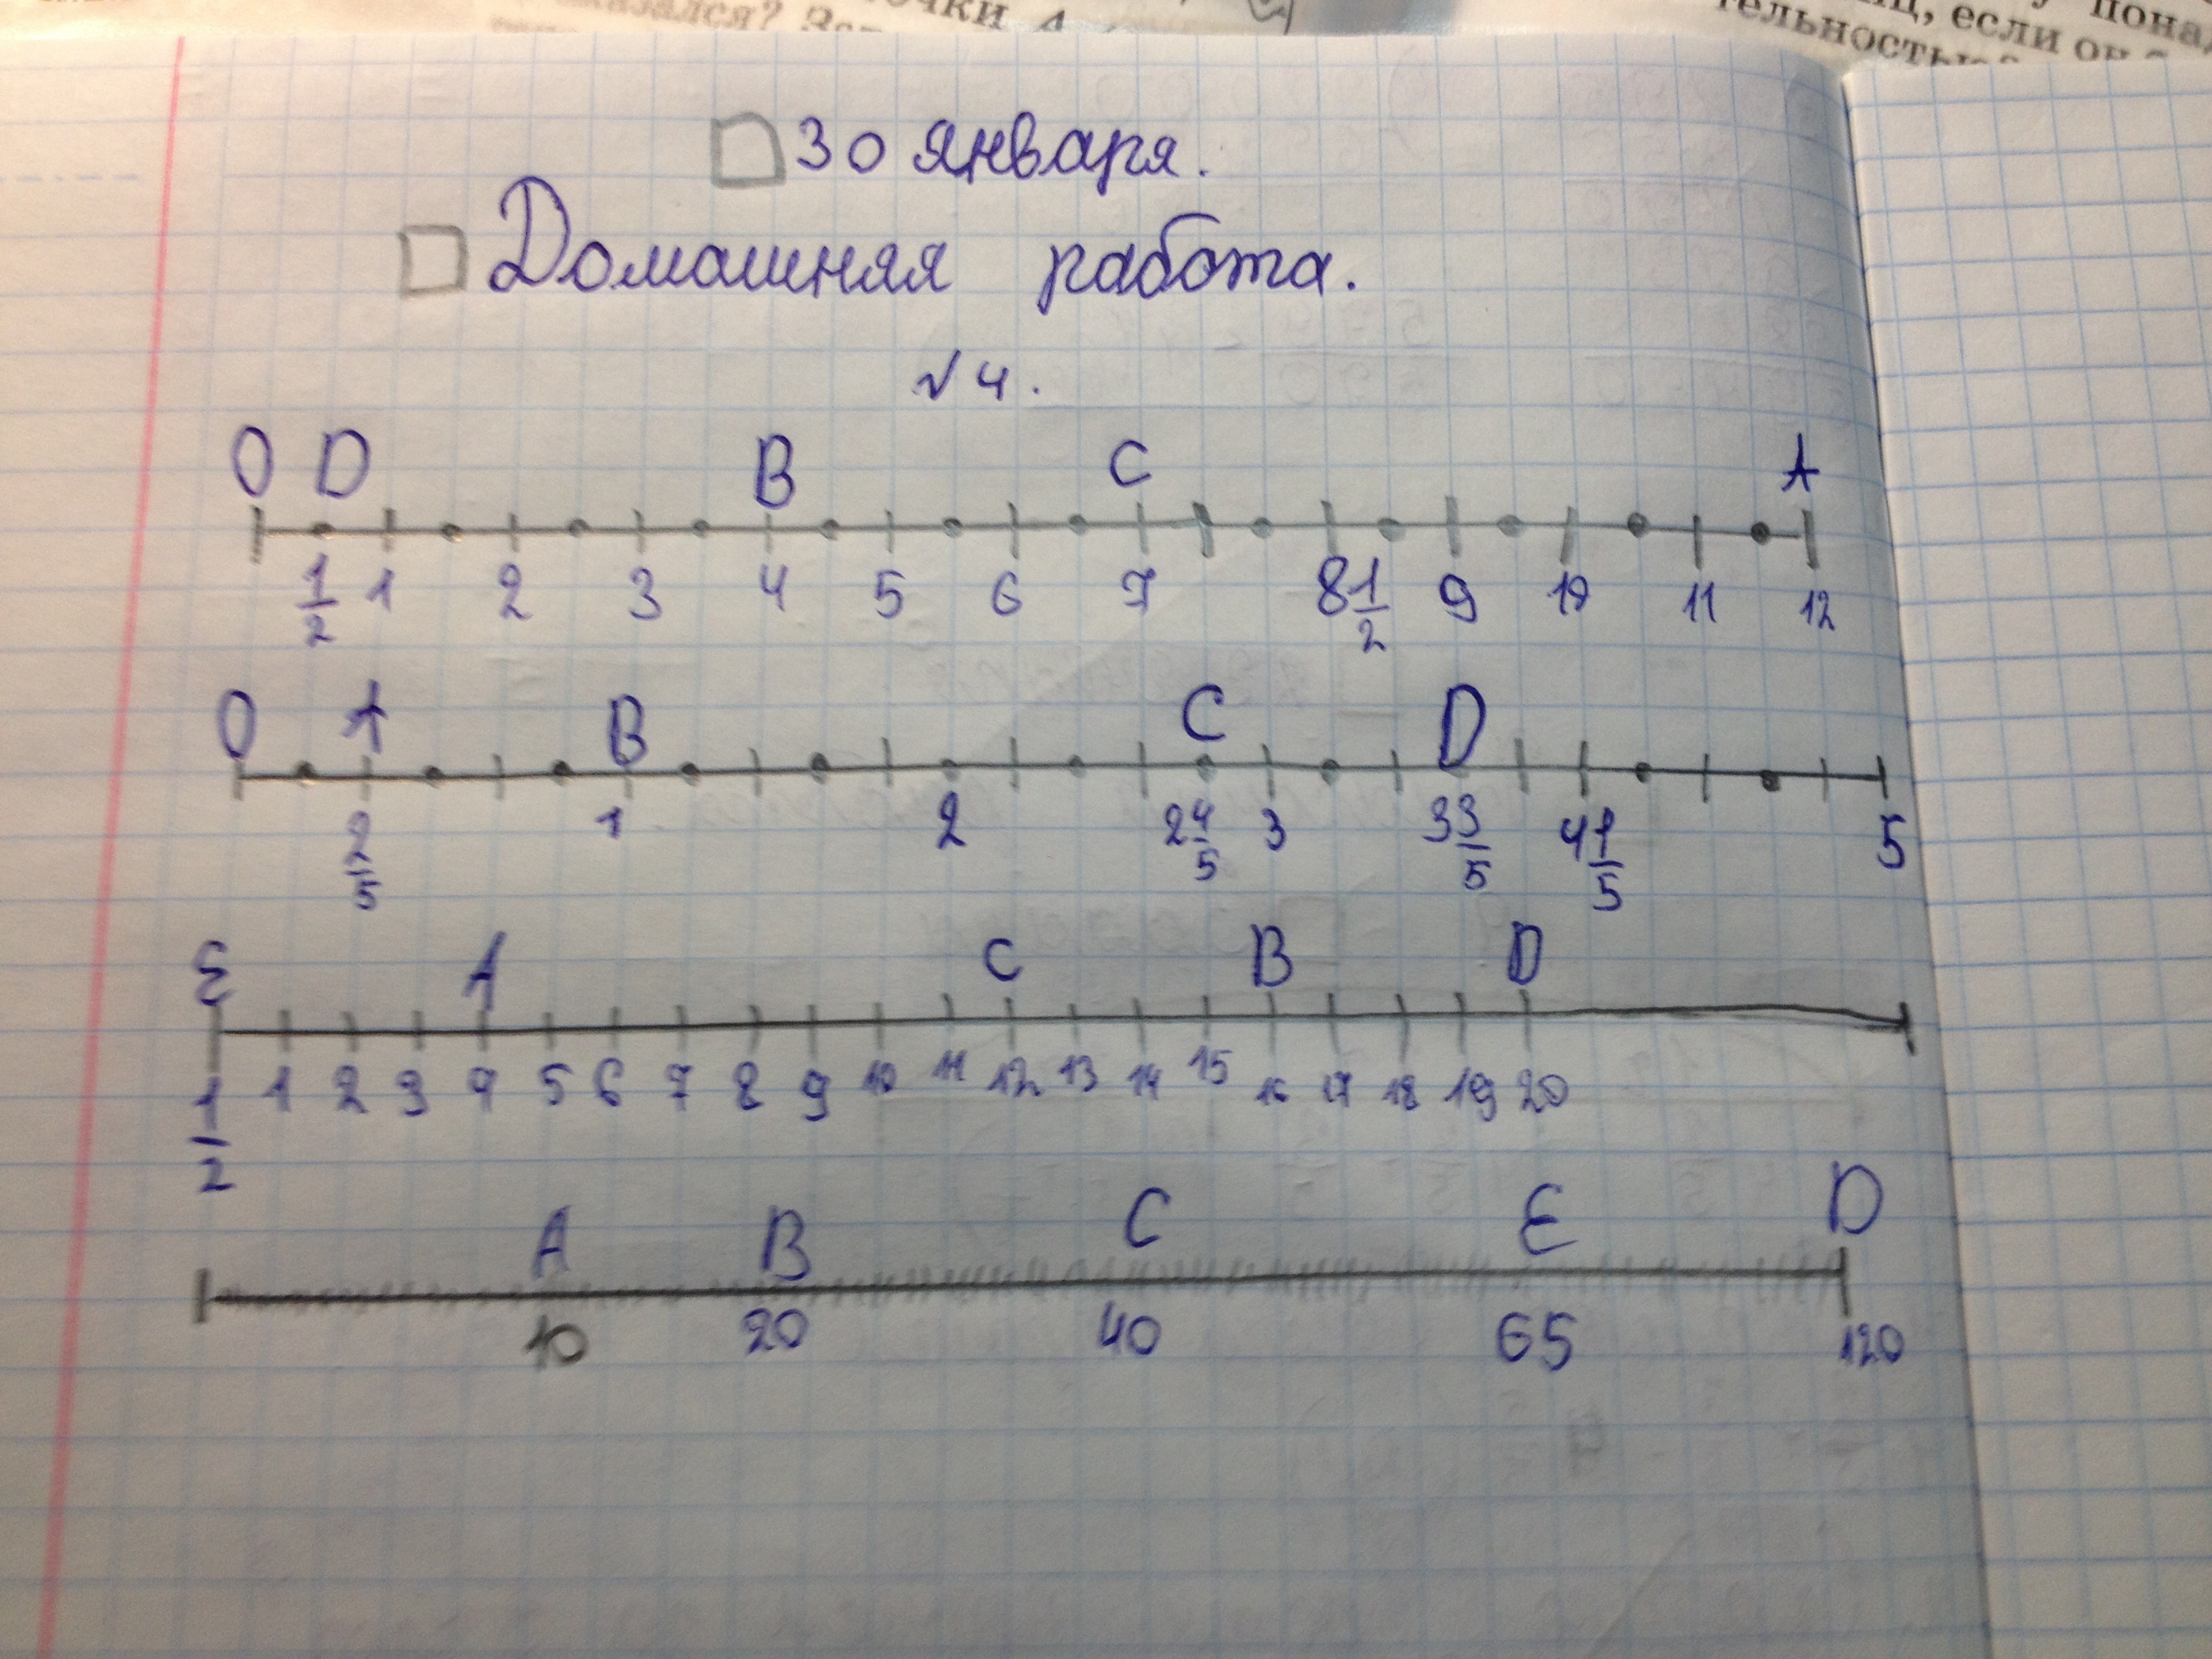 казался?
если он
30 января.
Домашняя работа.
√4.
O D B C A
1/2 1 2 3 4 5 6 7 8 1/2 9 10 11 12
O A B C D
2/5 1 2 2 4/5 3 3 3/5 4 1/5 5
E A C B D
1/2 1 2 3 4 5 6 7 8 9 10 11 12 13 14 15 16 17 18 19 20
A B C E D
10 20 40 65 120